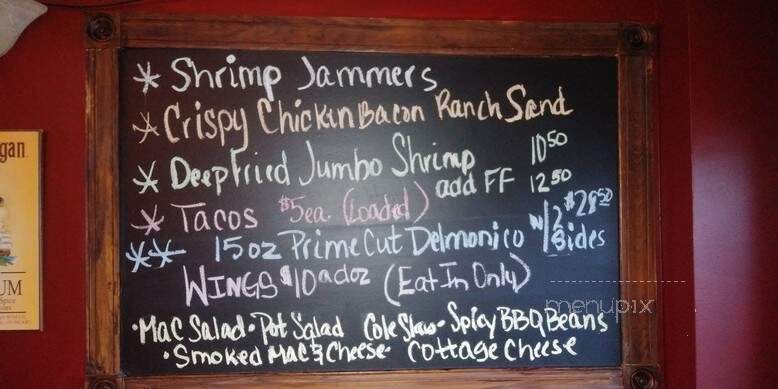 * Shrimp Jammers
* Crispy Chicken Bacon Ranch Sand
* Deep Fried Jumbo Shrimp 10 50
add FF 12 50
* Tacos $5 ea. (Loaded)
** 15 oz Prime Cut Delmonico w/ 2 Sides $28 50
WINGS $10 a doz (Eat In Only)
• Mac Salad • Pot Salad Cole Slaw • Spicy BBQ Beans
• Smoked Mac & Cheese • Cottage Cheese
gan
UM
Spice
menupix